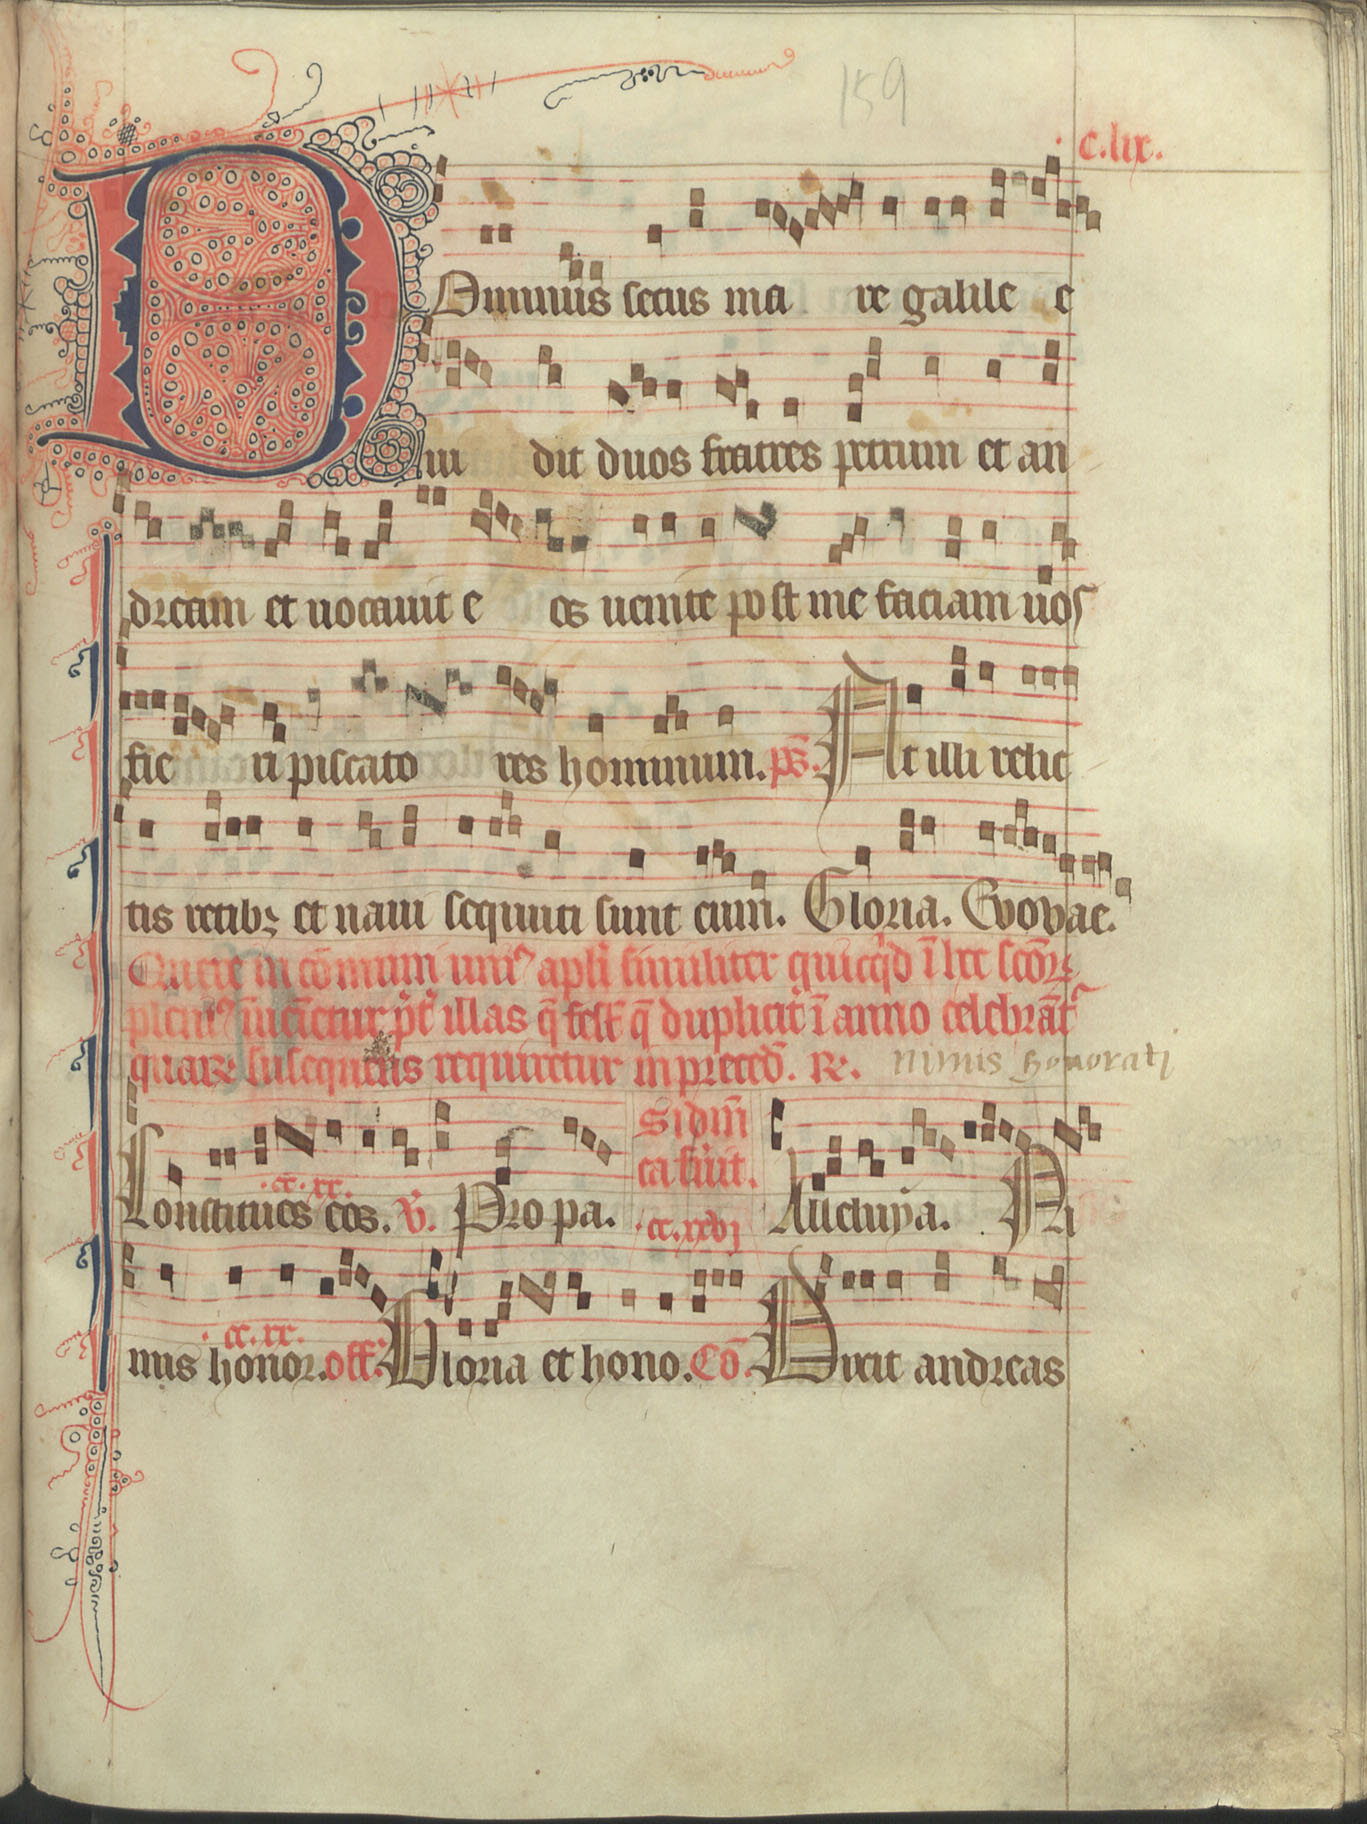 159
c.lix.
Dominus secus ma re galile e
ui dit duos fratres petrum et an
dream et uocauit e os uenite post me faciam uos
fie ri piscato res hominum. ps. At illi relic
tis retibꝫ et naui secuuti sunt eum. Gloria. Evovae.
in cōmuni uniꝰ apłi similiter quicq̇d ī hec
illas q̄ fest q̄ duplicit̾ ī anno celebrāt᷑
quare susequens requiretur in preced̄. R̸. nimis honorati
Constitues eos. .cc.xx. v̄. Pro pa. Si dn̄i ca fūit. .cc.xxvj Alleluya. Ni
mis honor. .cc.xx. off. Gloria et hono. Cō. Dixit andreas